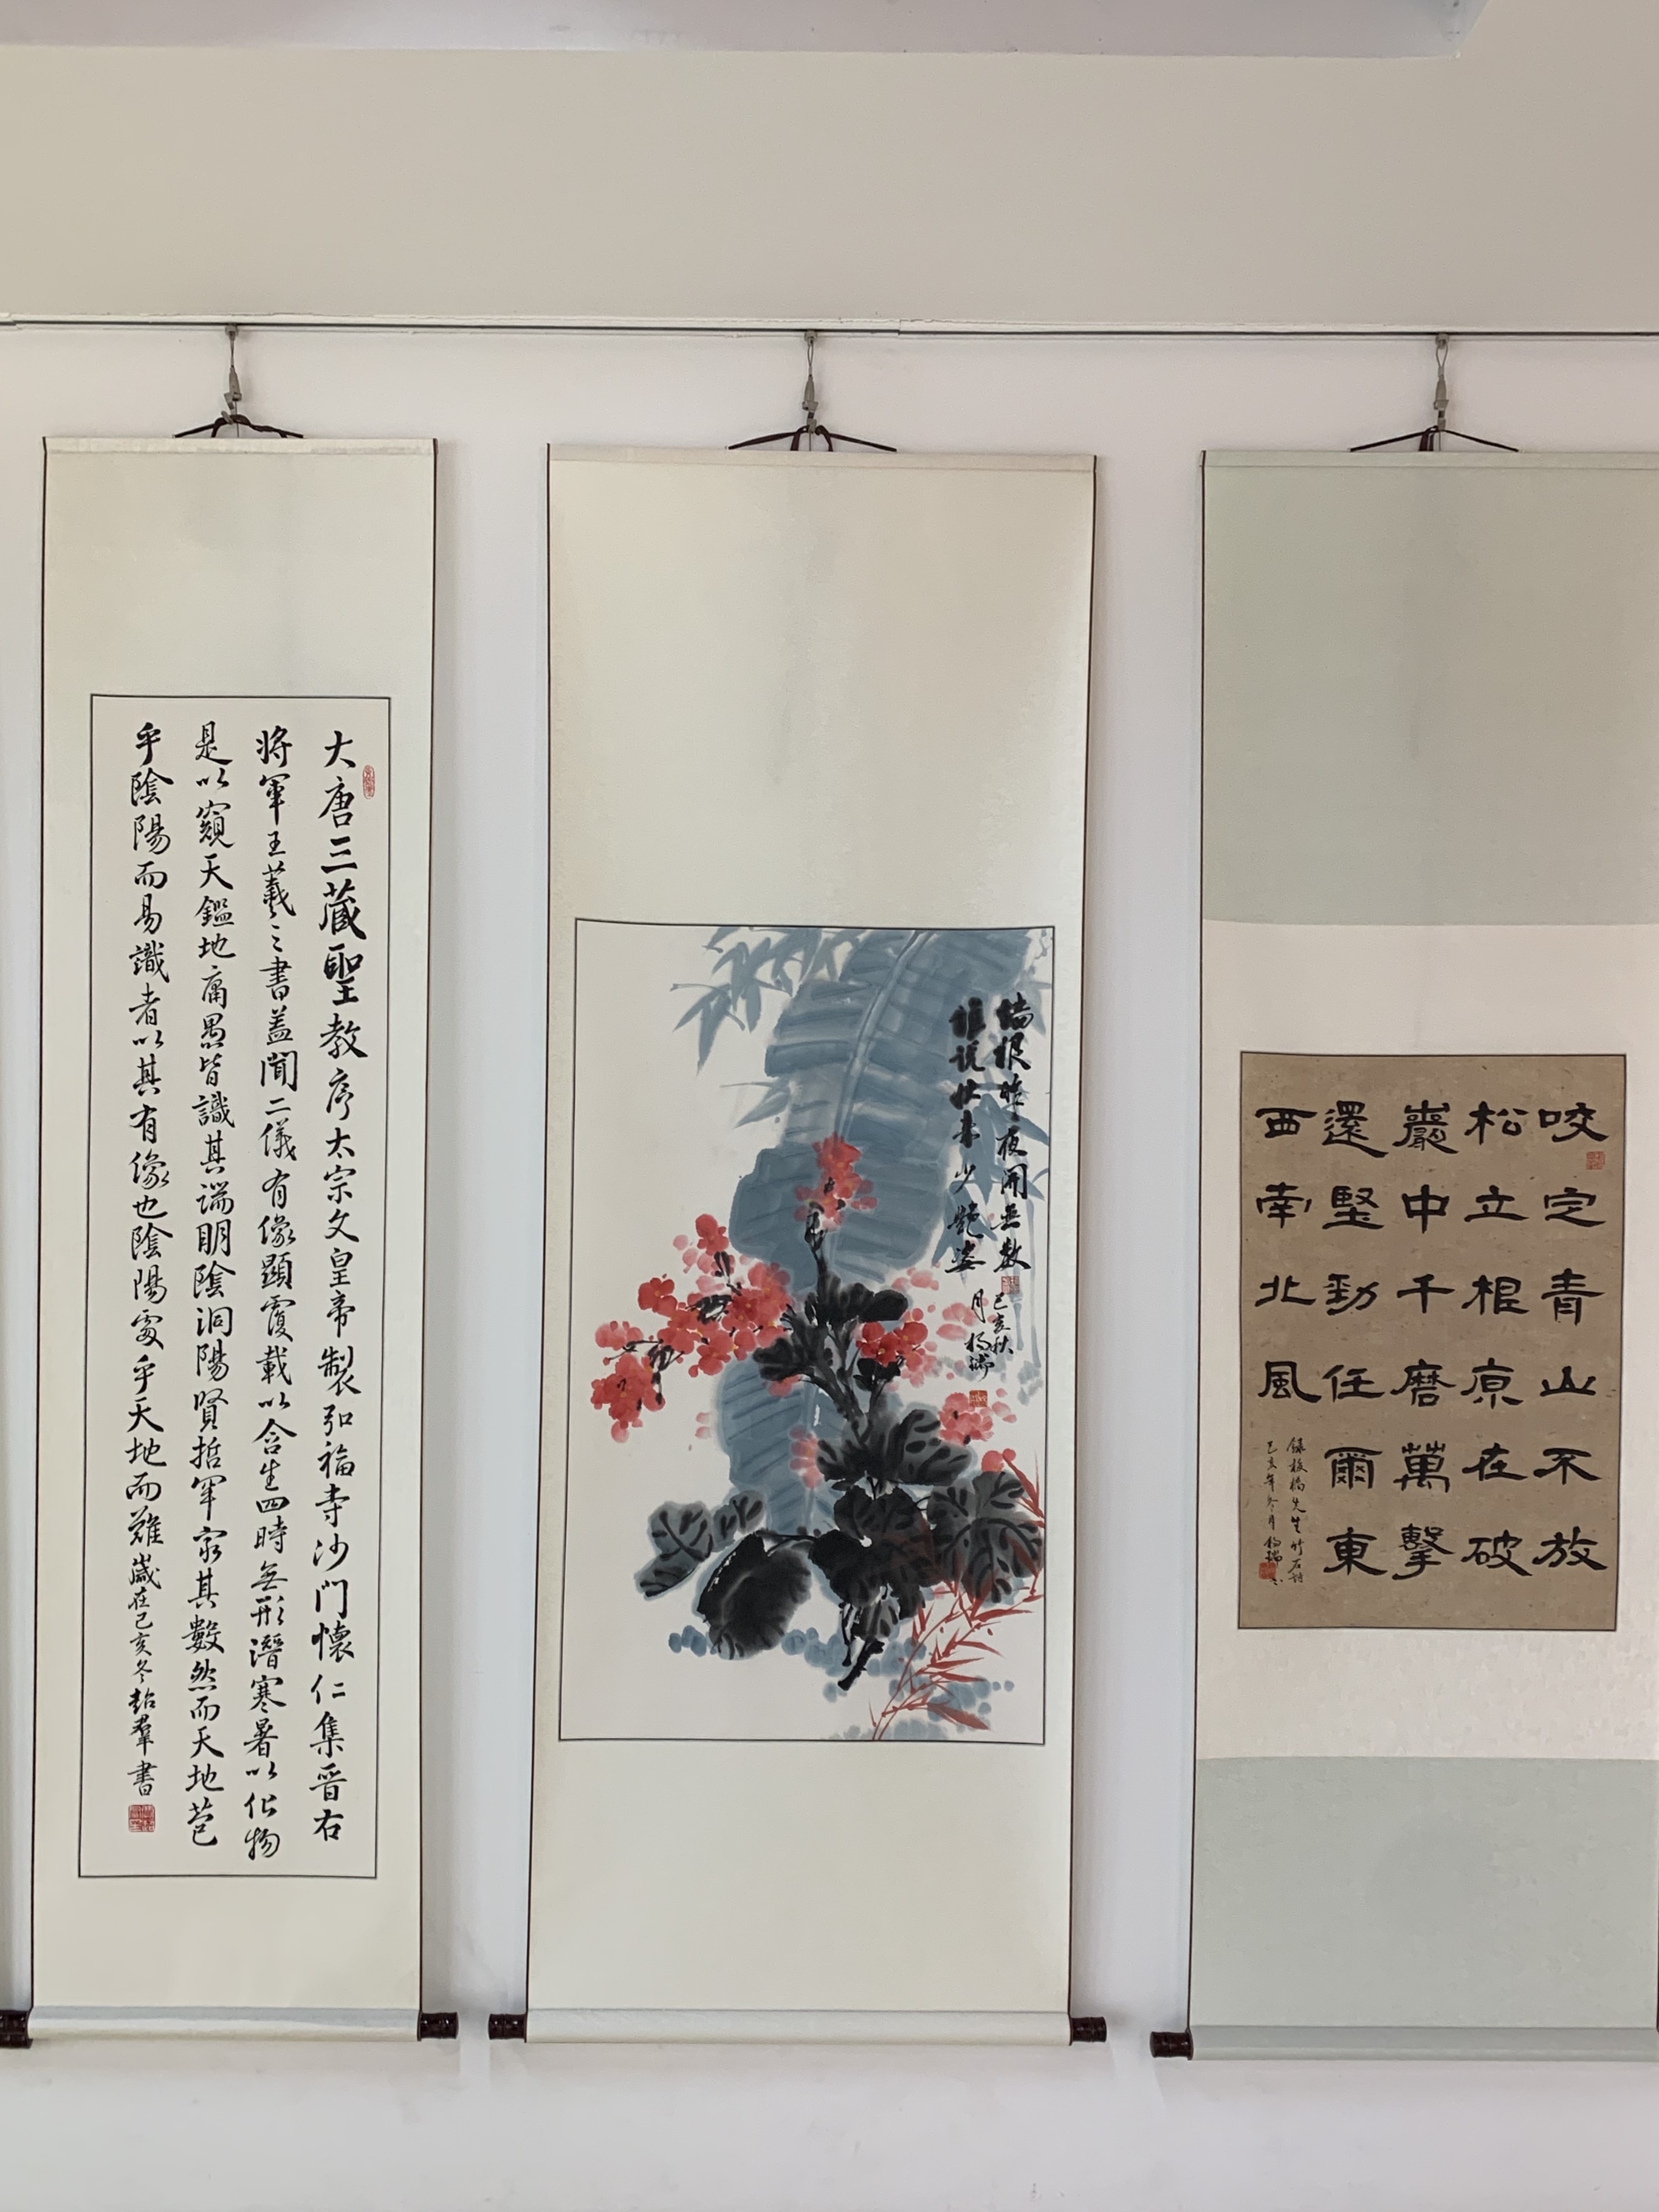 大唐三藏聖教序太宗文皇帝製弘福寺沙門懷仁集晉右
將軍王羲之書蓋聞二儀有像顯覆載以含生四時無形潛寒暑以化物
是以窺天鑑地庸愚皆識其端明陰洞陽賢哲罕窮其數然而天地苞
乎陰陽而易識者以其有像也陰陽處乎天地而難歲在己亥冬超羣書
墙根昨夜開無數
誰说秋来少艷姿
己亥秋
月楊瑞
咬定青山不放
松立根原在破
巖中千磨萬擊
還堅勁任爾東
西南北風
録板橋先生竹石詩
己亥年冬月楊瑞